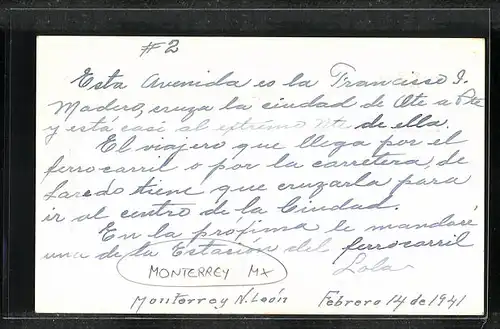 #2
Esta Avenida es la Francisco I.
Madero, cruza la ciudad de Ote a Pte
y está casi al extremo Nte de ella.
El viajero que llega por el
ferrocarril o por la carretera, de
Laredo tiene que cruzarla para
ir al centro de la Ciudad.
En la profima le mandaré
una de la Estación del ferrocarril
Lola
MONTERREY MX
Monterrey N. León Febrero 14 de 1941